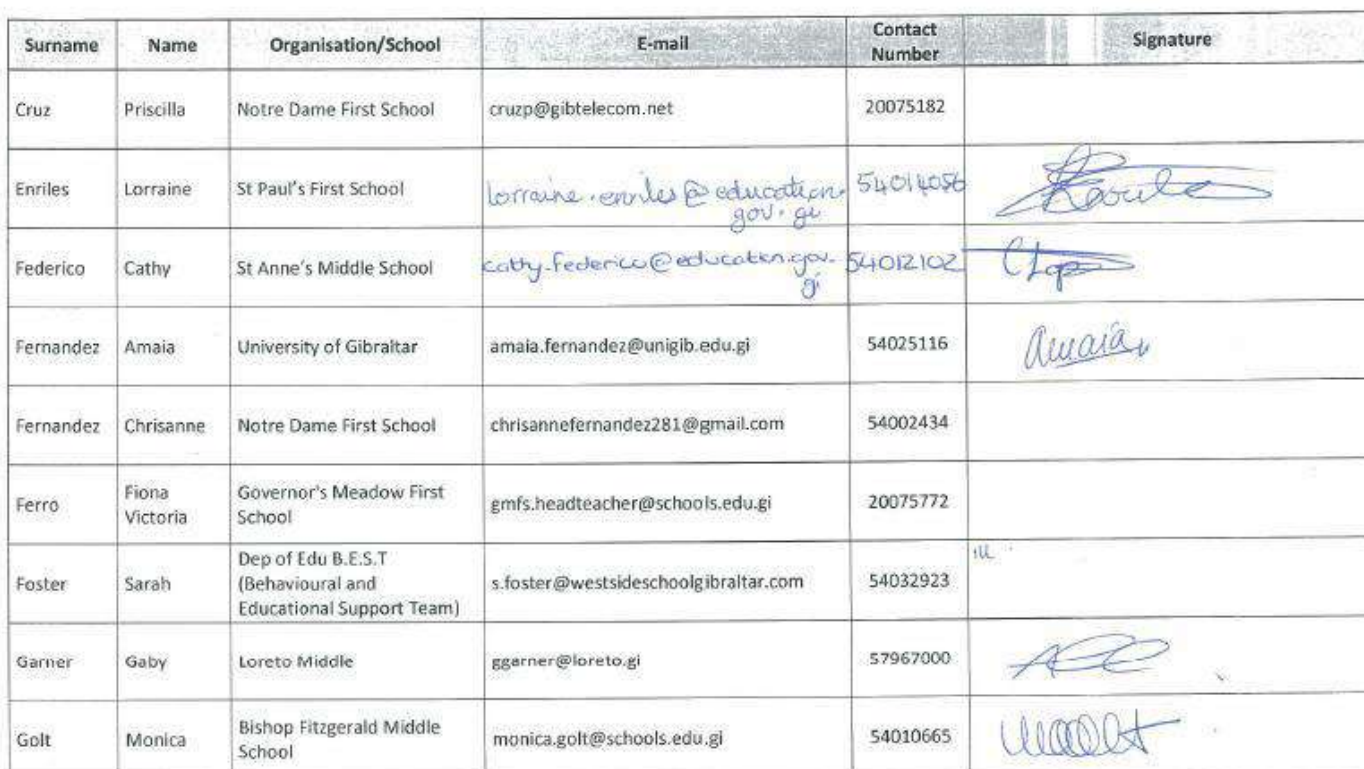 Surname Name Organisation/School E-mail Contact Number Signature
Cruz Priscilla Notre Dame First School cruzp@gibtelecom.net 20075182
Enriles Lorraine St Paul's First School lorraine.enriles@education.gov.gi 54014056
Federico Cathy St Anne's Middle School cathy.federico@education.gov.gi 54012102
Fernandez Amaia University of Gibraltar amaia.fernandez@unigib.edu.gi 54025116 Amaia
Fernandez Chrisanne Notre Dame First School chrisannefernandez281@gmail.com 54002434
Ferro Fiona Victoria Governor's Meadow First School gmfs.headteacher@schools.edu.gi 20075772
Foster Sarah Dep of Edu B.E.S.T (Behavioural and Educational Support Team) s.foster@westsideschoolgibraltar.com 54032923 ill
Garner Gaby Loreto Middle ggarner@loreto.gi 57967000
Golt Monica Bishop Fitzgerald Middle School monica.golt@schools.edu.gi 54010665